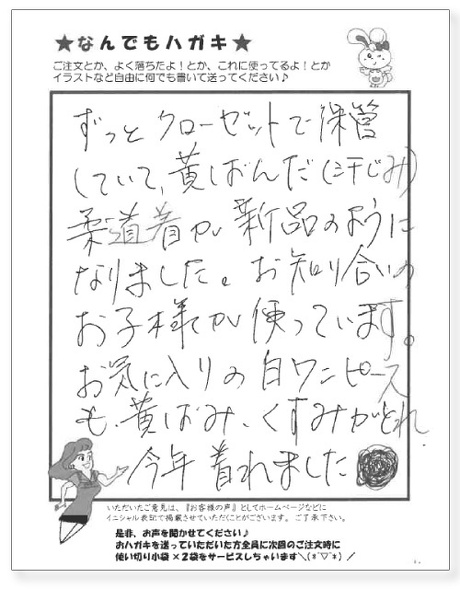 ★なんでもハガキ★
ご注文とか、よく落ちたよ！とか、これに使ってるよ！とか
イラストなど自由に何でも書いて送ってください♪
ずっと クローゼットで保管
していて、黄ばんだ(汗じみ)
柔道着が 新品のように
なりました。お知り合いの
お子様が 使っています。
お気に入りの 白ワンピース
も、黄ばみ、くすみがとれ
今年 着れました
いただいたご意見は、『お客様の声』としてホームページなどに
イニシャル表記で掲載させていただくことがございます。ご了承下さい。
是非、お声を聞かせてください♪
おハガキを送っていただいた方全員に次回のご注文時に
使い切り小袋×2袋をサービスしちゃいます＼(*´▽`*)／